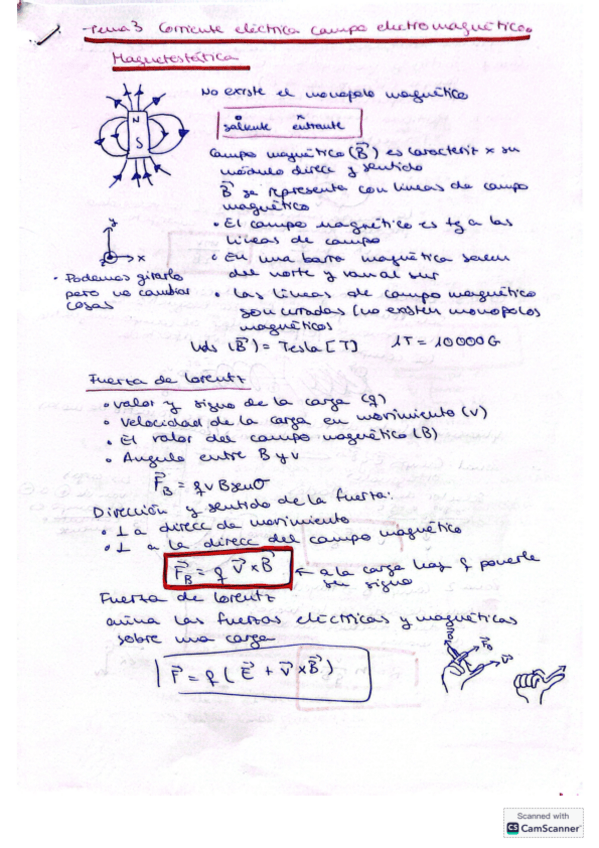 Tema 3 Corriente eléctrica campo electromagnético.
Magnetostática
No existe el monopolo magnético
N
S
saliente x entrante
Campo magnético (B⃗) es caracterit x su
módulo direcc y sentido
B⃗ se representa con líneas de campo
magnético
• El campo magnético es tg a las
líneas de campo
y
z x
• En una barra magnética salen
del norte y van al sur
• Podemos girarlo
pero no cambiar
cosas
• Las líneas de campo magnético
son cerradas (no existen monopolos
magnéticos
Uds (B⃗) = Tesla [T] 1T = 10000G
Fuerza de Lorentz
• valor y signo de la carga (q)
• Velocidad de la carga en movimiento (v)
• El valor del campo magnético (B)
• Angulo entre B y v
F⃗B = q v B senσ
Dirección y sentido de la fuerza:
• ⊥ a direcc de movimiento
• ⊥ a la direcc del campo magnético
F⃗B = q v⃗ x B⃗ ← a la carga hay q ponerle
su signo
Fuerza de Lorentz
aúna las fuerzas eléctricas y magnéticas
sobre una carga
F⃗ = q ( E⃗ + v⃗ x B⃗ )
Scanned with
CS CamScanner